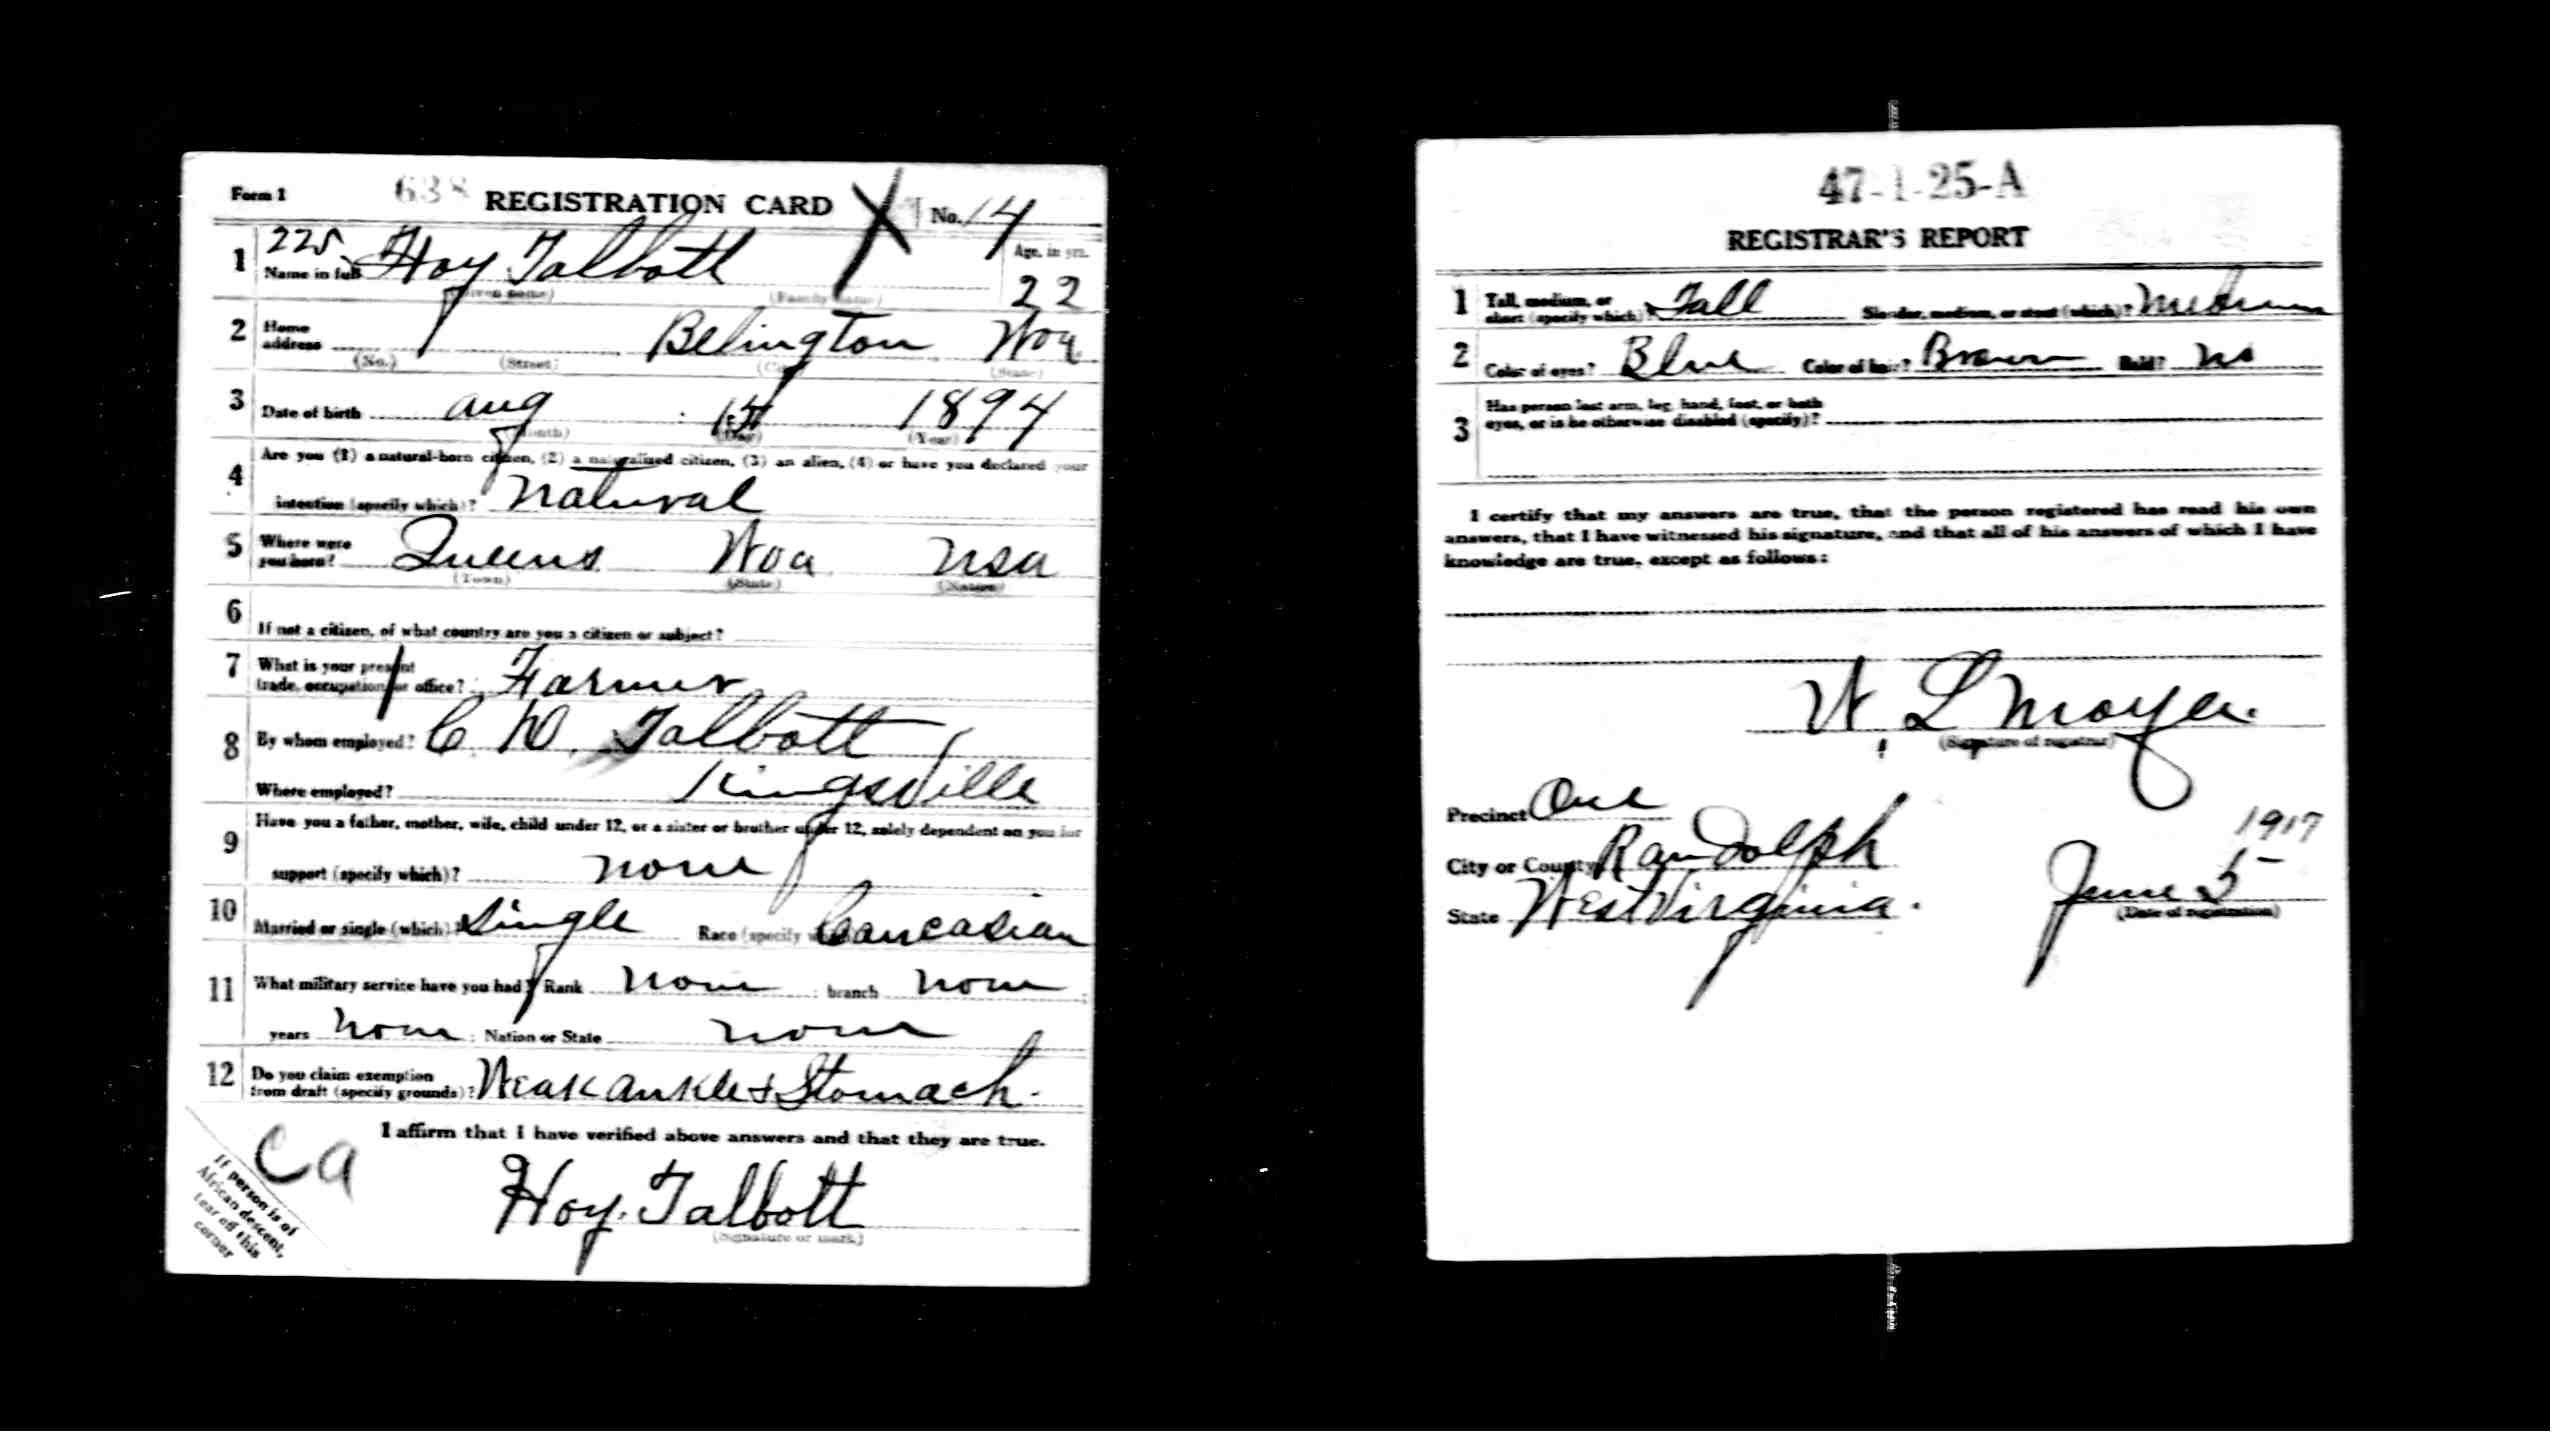 Form 1 638 REGISTRATION CARD X No. 14
1 225 Name in full Hoy Talbott Age, in yrs.
(Given name) (Family name) 22
2 Home address Belington Wva
(No.) (Street) (City) (State)
3 Date of birth Aug 1894
(Month) (Day) (Year)
4 Are you (1) a natural-born citizen, (2) a naturalized citizen, (3) an alien, (4) or have you declared your
intention (specify which)? Natural
5 Where were you born? Queens Wva USA
(Town) (State) (Nation)
6 If not a citizen, of what country are you a citizen or subject?
7 What is your present
trade, occupation, or office? Farmer
8 By whom employed? C. W. Talbott
Where employed? Kingsville
9 Have you a father, mother, wife, child under 12, or a sister or brother under 12, solely dependent on you for
support (specify which)? None
10 Married or single (which)? Single Race (specify Caucasian
11 What military service have you had? Rank None ; branch None ;
years None ; Nation or State None
12 Do you claim exemption
from draft (specify grounds)? Weak ankle & Stomach.
I affirm that I have verified above answers and that they are true.
Ca
Hoy. Talbott
(Signature or mark)
If person is of
African descent,
tear off this
corner
47-1-25-A
REGISTRAR'S REPORT
1 Tall, medium, or
short (specify which)? Tall Slender, medium, or stout (which)? Medium
2 Color of eyes? Blue Color of hair? Brown Bald? No
3 Has person lost arm, leg, hand, foot, or both
eyes, or is he otherwise disabled (specify)?
I certify that my answers are true, that the person registered has read his own
answers, that I have witnessed his signature, and that all of his answers of which I have
knowledge are true, except as follows:
W L Moyer.
(Signature of registrar)
Precinct One
City or County Randolph 1917
State West Virginia. June 5
(Date of registration)